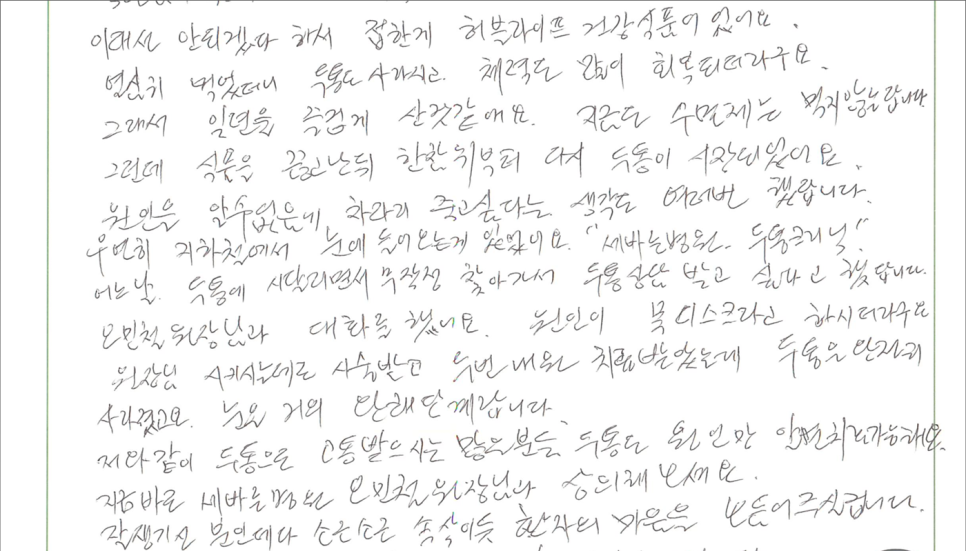 이래선 안되겠다 해서 접한게 허브라이프 건강식품이 있어요.
열심히 먹었더니 두통도 사라지고. 체력도 많이 회복되더라구요.
그래서 일년을 즐겁게 산것같애요. 지금도 수면제는 먹지않는답니다
그런데 식품을 끊고난뒤 한달뒤부터 다시 두통이 시작되었어요.
원인을 알수없음에 차라리 죽고싶다는 생각도 여러번 했답니다.
우연히 지하철에서 눈에 들어오는게 있었어요. "세바른병원. 두통크리닉."
어느날. 두통에 시달리면서 무작정 찾아가서 두통상담 받고 싶다고 했답니다.
오민철 원장님과 대화를 했어요. 원인이 목디스크라고 하시더라구요
원장님 시키시는데로 시술받고 두번 내원 치료받았는데 두통은 완전히
사라졌고요. 눈은 거의 완해단계랍니다.
저와같이 두통으로 고통받으시는 많은분들, 두통도 원인만 알면치료가능해요.
지금바로 세바른병원 오민철 원장님과 상의해 보세요.
잘생기신 분인데다 소근소근 속삭이듯 환자의 마음을 보듬어주신답니다.